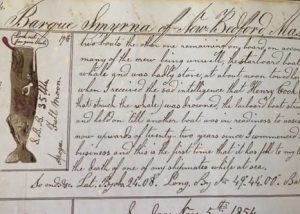 Barque Smyrna of New Bedford Mas
two boats the other one remaining on board, on acco
many of the crew being unwell, the starboard boat
whale and was badly stove, at about noon loud
when I received the sad intelligence that Henry Cook
that struck the whale) was drowned, the larboard boat
and held on till another boat was in readiness to
now upwards of twenty two years since I commenced
business and this is the first time that it has fell to my
the death of one of my shipmates while at sea.
So ends Lat. By 24.08. Long, By 49.44.00
S.B.B. 35 bbls
Full Moon
5th 1854